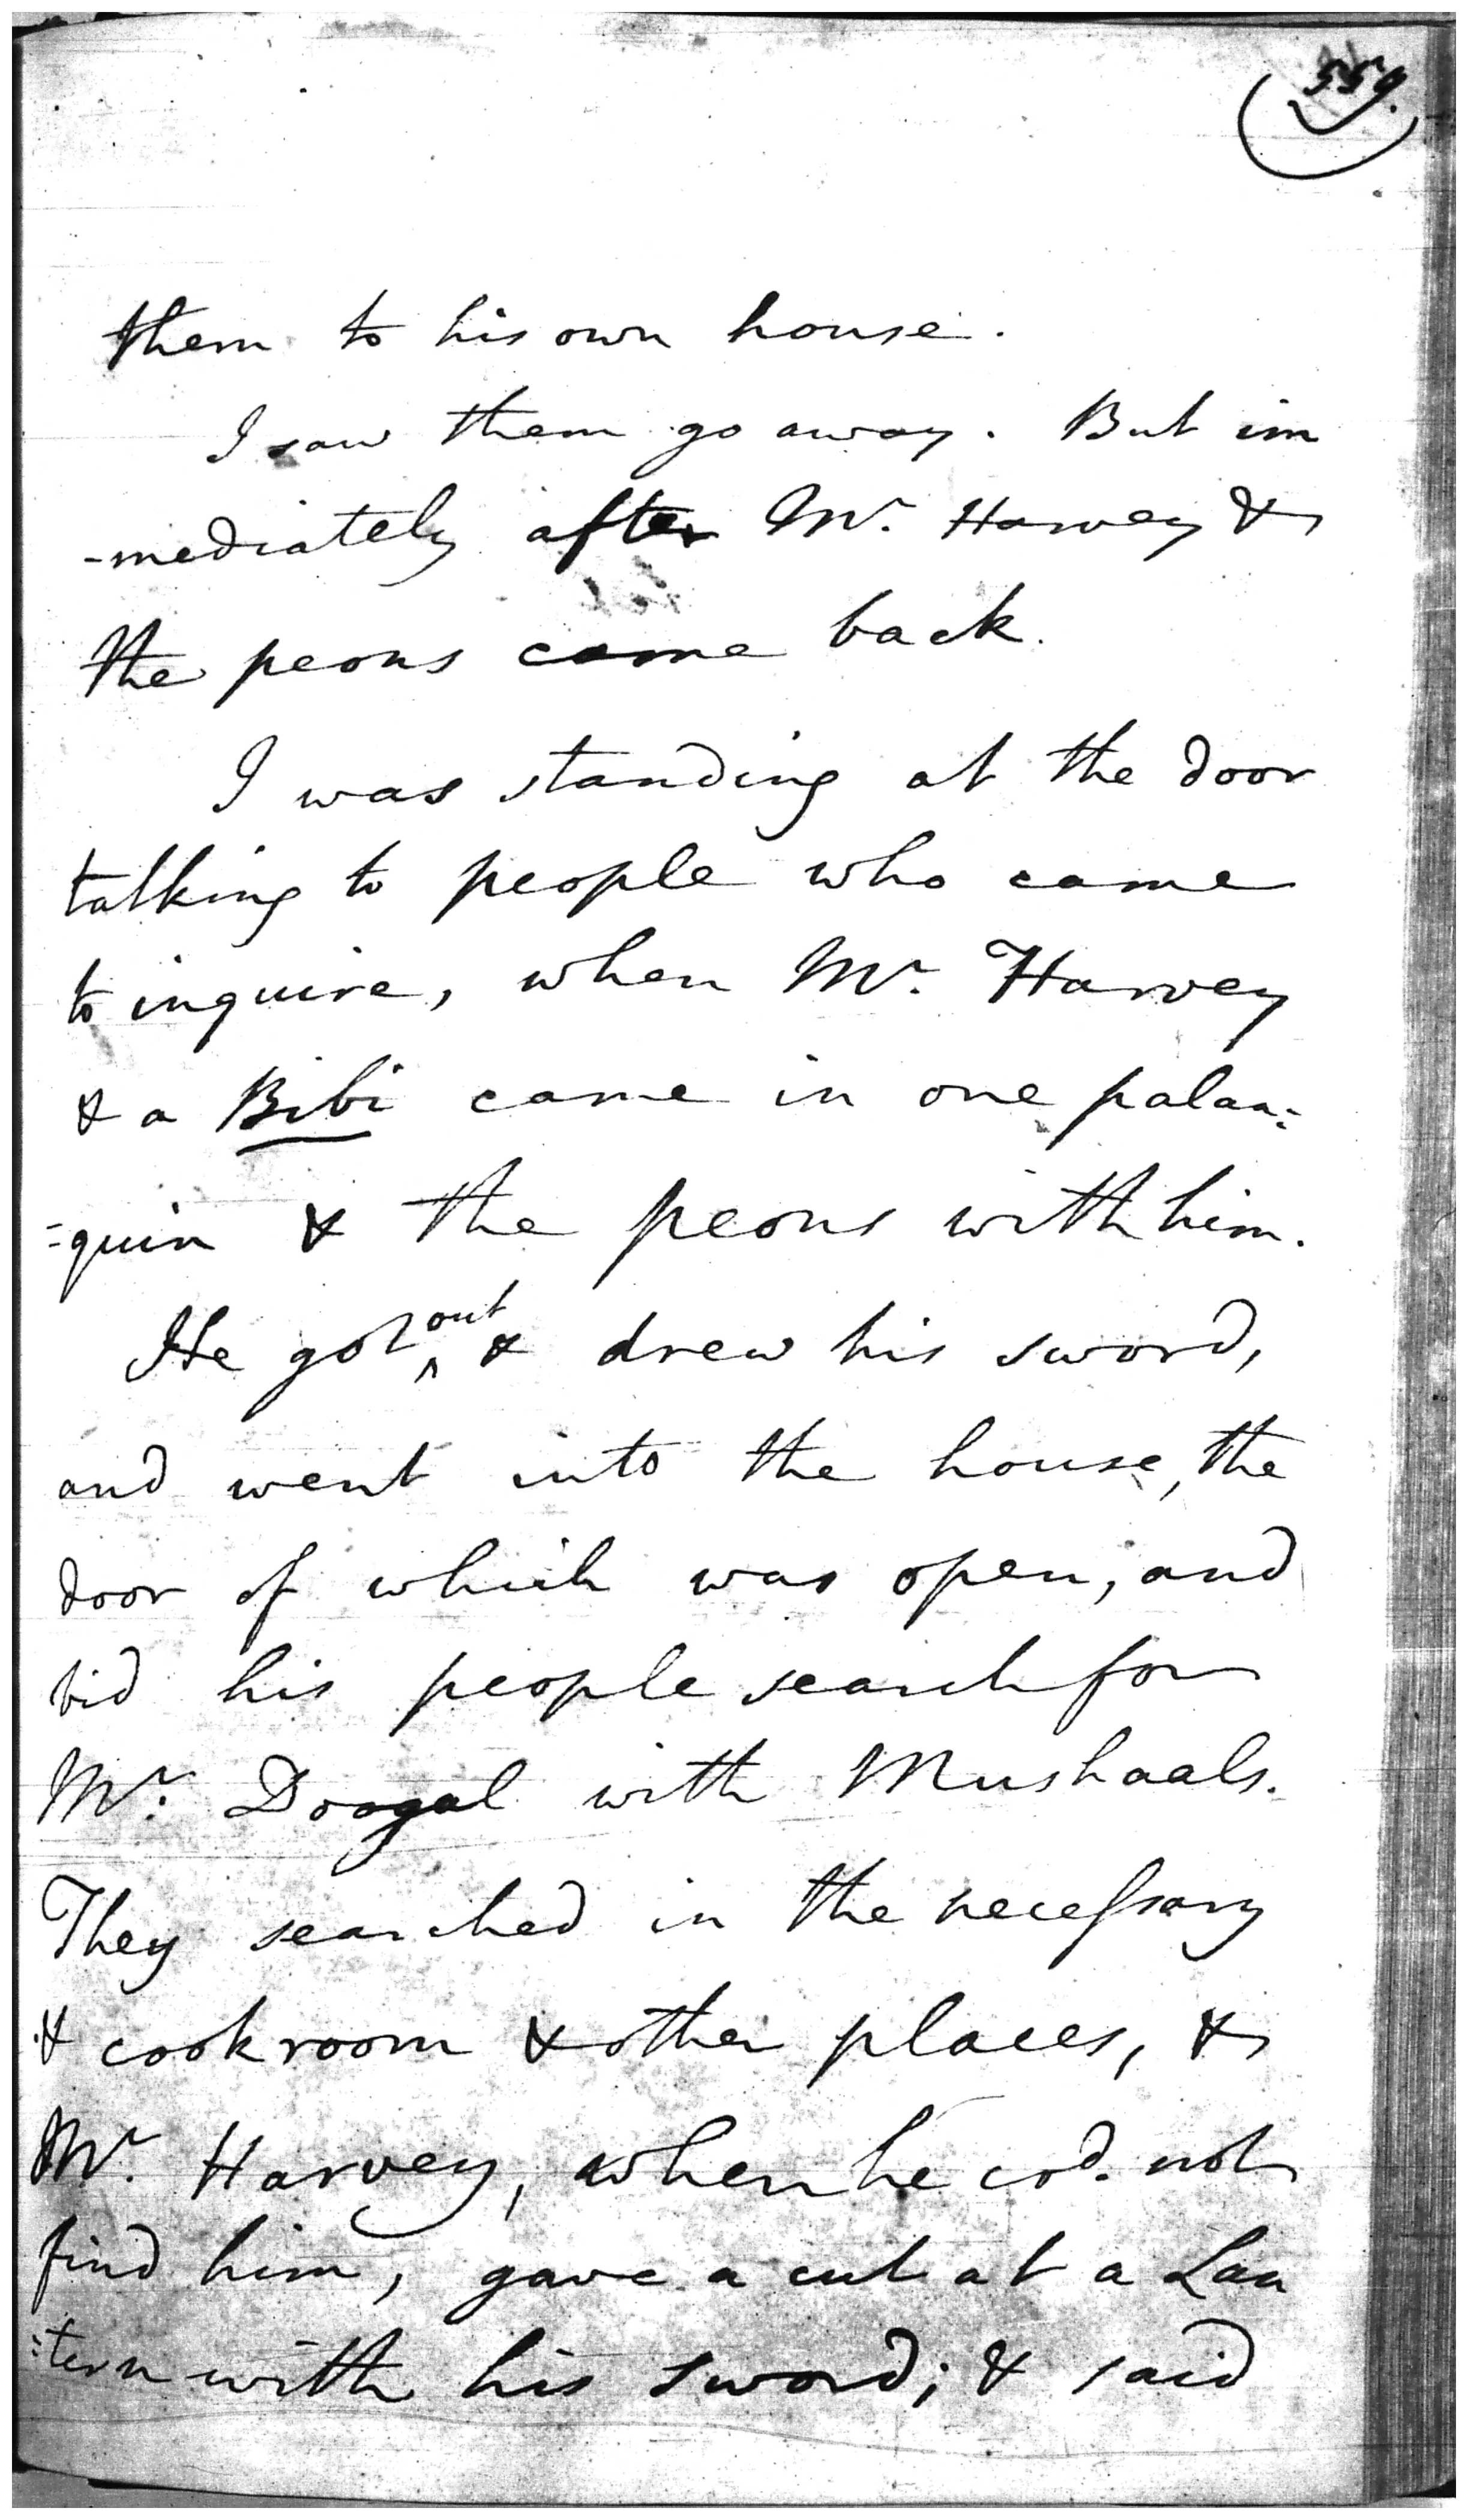 559.
them to his own house.
I saw them go away. But im
-mediately after Mr. Harvey &
the peons came back.
I was standing at the door
talking to people who came
to inquire, when Mr. Harvey
& a Bibi came in one palan=
=quin & the peons with him.
He got out & drew his sword,
and went into the house, the
door of which was open, and
bid his people search for
Mr. Doogal with Mushaals.
They searched in the necessary
& cookroom & other places, &
Mr. Harvey, when he cod. not
find him, gave a cut at a Lan
=tern with his sword; & said